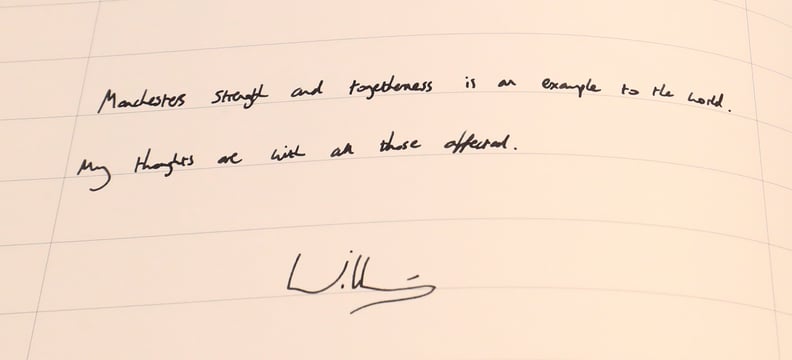 Manchesters strength and togetherness is an example to the world.
My thoughts are with all those affected.
William